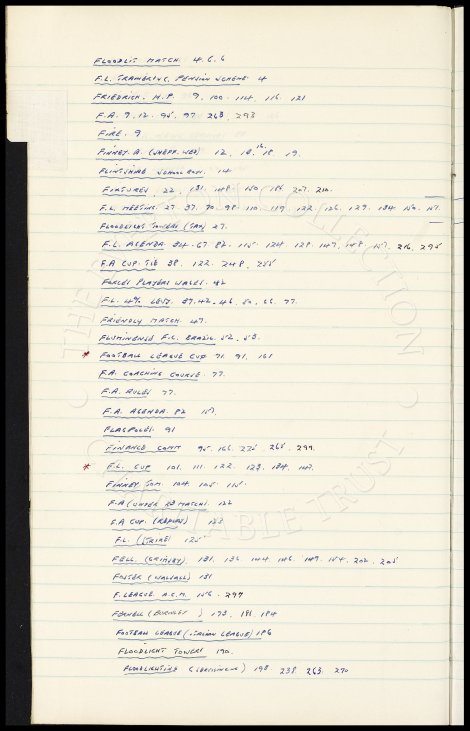 FLOODLIT MATCH. 4. 5. 6
F.L. PENSION SCHEME. 4
FRIEDRICH. M.P. 9. 100. 114. 116. 121
F.A. 9. 12. 95. 97. 268. 293
FIRE. 9
FINNEY. A. (SHEFF. WED) 12. 18. 19.
FLINTSHIRE SCHOOL BOYS. 14
FIXTURES. 22. 131. 148. 150. 184. 207. 212.
F.L. MEETING. 27. 37. 70. 98. 110. 119. 122. 126. 127. 134. 150. 157.
FLOODLIGHT TOWERS (TAX) 27.
F.L. AGENDA. 34. 67. 82. 115. 124. 128. 147. 148. 157. 216. 295
F.A CUP. TIE 38. 122. 248. 255
FORCES PLAYERS WAGES. 42
F.L. 4% LEVY. 37. 42. 46. 50. 66. 77.
FRIENDLY MATCH. 47.
FLUMINENSE F.C. BRAZIL. 52. 53.
* FOOTBALL LEAGUE CUP 71. 91. 161
F.A. COACHING COURSE. 77.
F.A. RULES 77.
F.A. AGENDA. 82 157.
FLAGPOLES. 91
FINANCE COMT 95. 166. 225. 265. 299.
* F.L. CUP 101. 111. 122. 123. 134. 147.
FINNEY TOM. 104. 105. 115.
F.A (UNDER 23 MATCH). 122
F.A CUP. (REPLAY) 123
F.L. (STRIKE) 125
FELL. (GRIMSBY) 131. 136. 144. 146. 149. 154. 202. 205
FOSTER (WALSALL) 131
F. LEAGUE A.G.M. 156. 297
FENNELL (BURNLEY ) 173. 181. 184
FOOTBALL LEAGUE (ITALIAN LEAGUE) 186
FLOODLIGHT TOWERS 190.
FLOODLIGHTING 198. 238. 263. 270
THE
COLLECTION
CHARITABLE TRUST